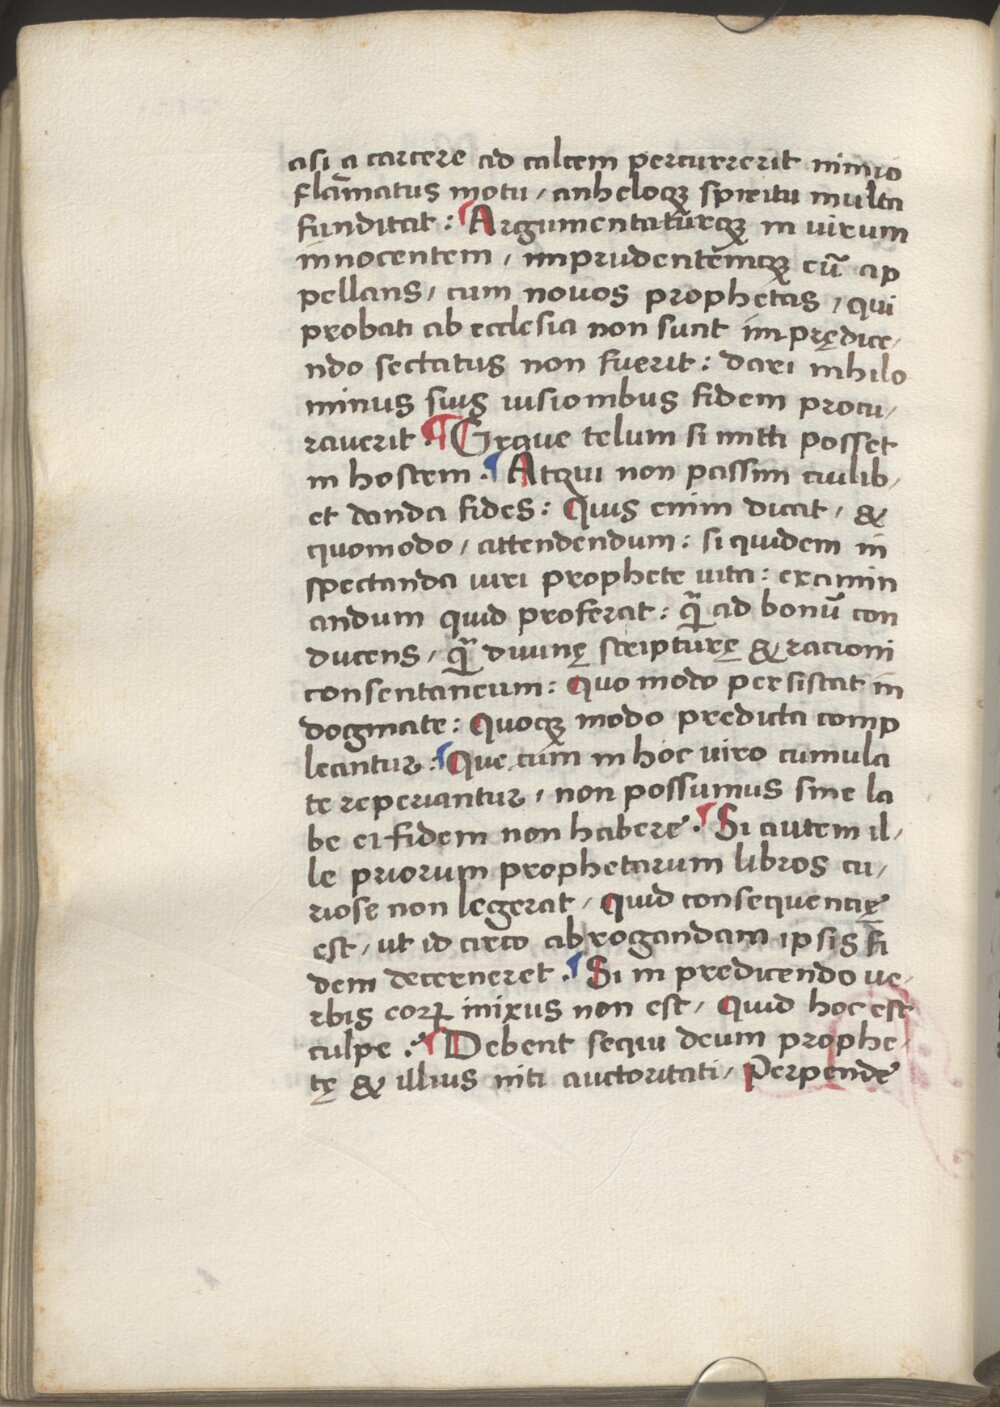 asi a carcere ad calcem percurrerit nimio
flāmatus motu / anheloqꝫ spiritu multa
funditat : Argumentatūrqꝫ in uirum
innocentem / imprudentēmqꝫ eū ap
pellans / cum nouos prophetas / qui
probati ab ecclesia non sunt im prędice/
ndo sectatus non fuerit : dari nihilo
minus suis uisionibus fidem procu/
rauerit . ¶ Graue telum si mitti posset
in hostem . Atqui non passim cuilib/
et danda fides : Quis enim dicat / &
quomodo / attendendum : si quidem in
spectanda uiri prophete uita : examin
andum quid proferat : qͣ̄ ad bonū con
ducens / qͣ̄ diuinę scripturę & racioni
consentaneum : Quo modo persistat in
dogmate : Quoqꝫ modo predicta comp
leantur : Que cum in hoc uiro cumula
te reperiantur / non possumus sine la
be ei fidem non habere . Si autem il/
le priorum prophetarum libros cu/
riose non legerat / Quid consequencię
est / ut id circo abrogandam ipsis fi
dem decerneret . Si in predicendo ue/
rbis eorꝝ inixus non est / Quid hoc est
culpe . Debent sequi deum prophe/
tę & illius niti auctoritati / Perpende